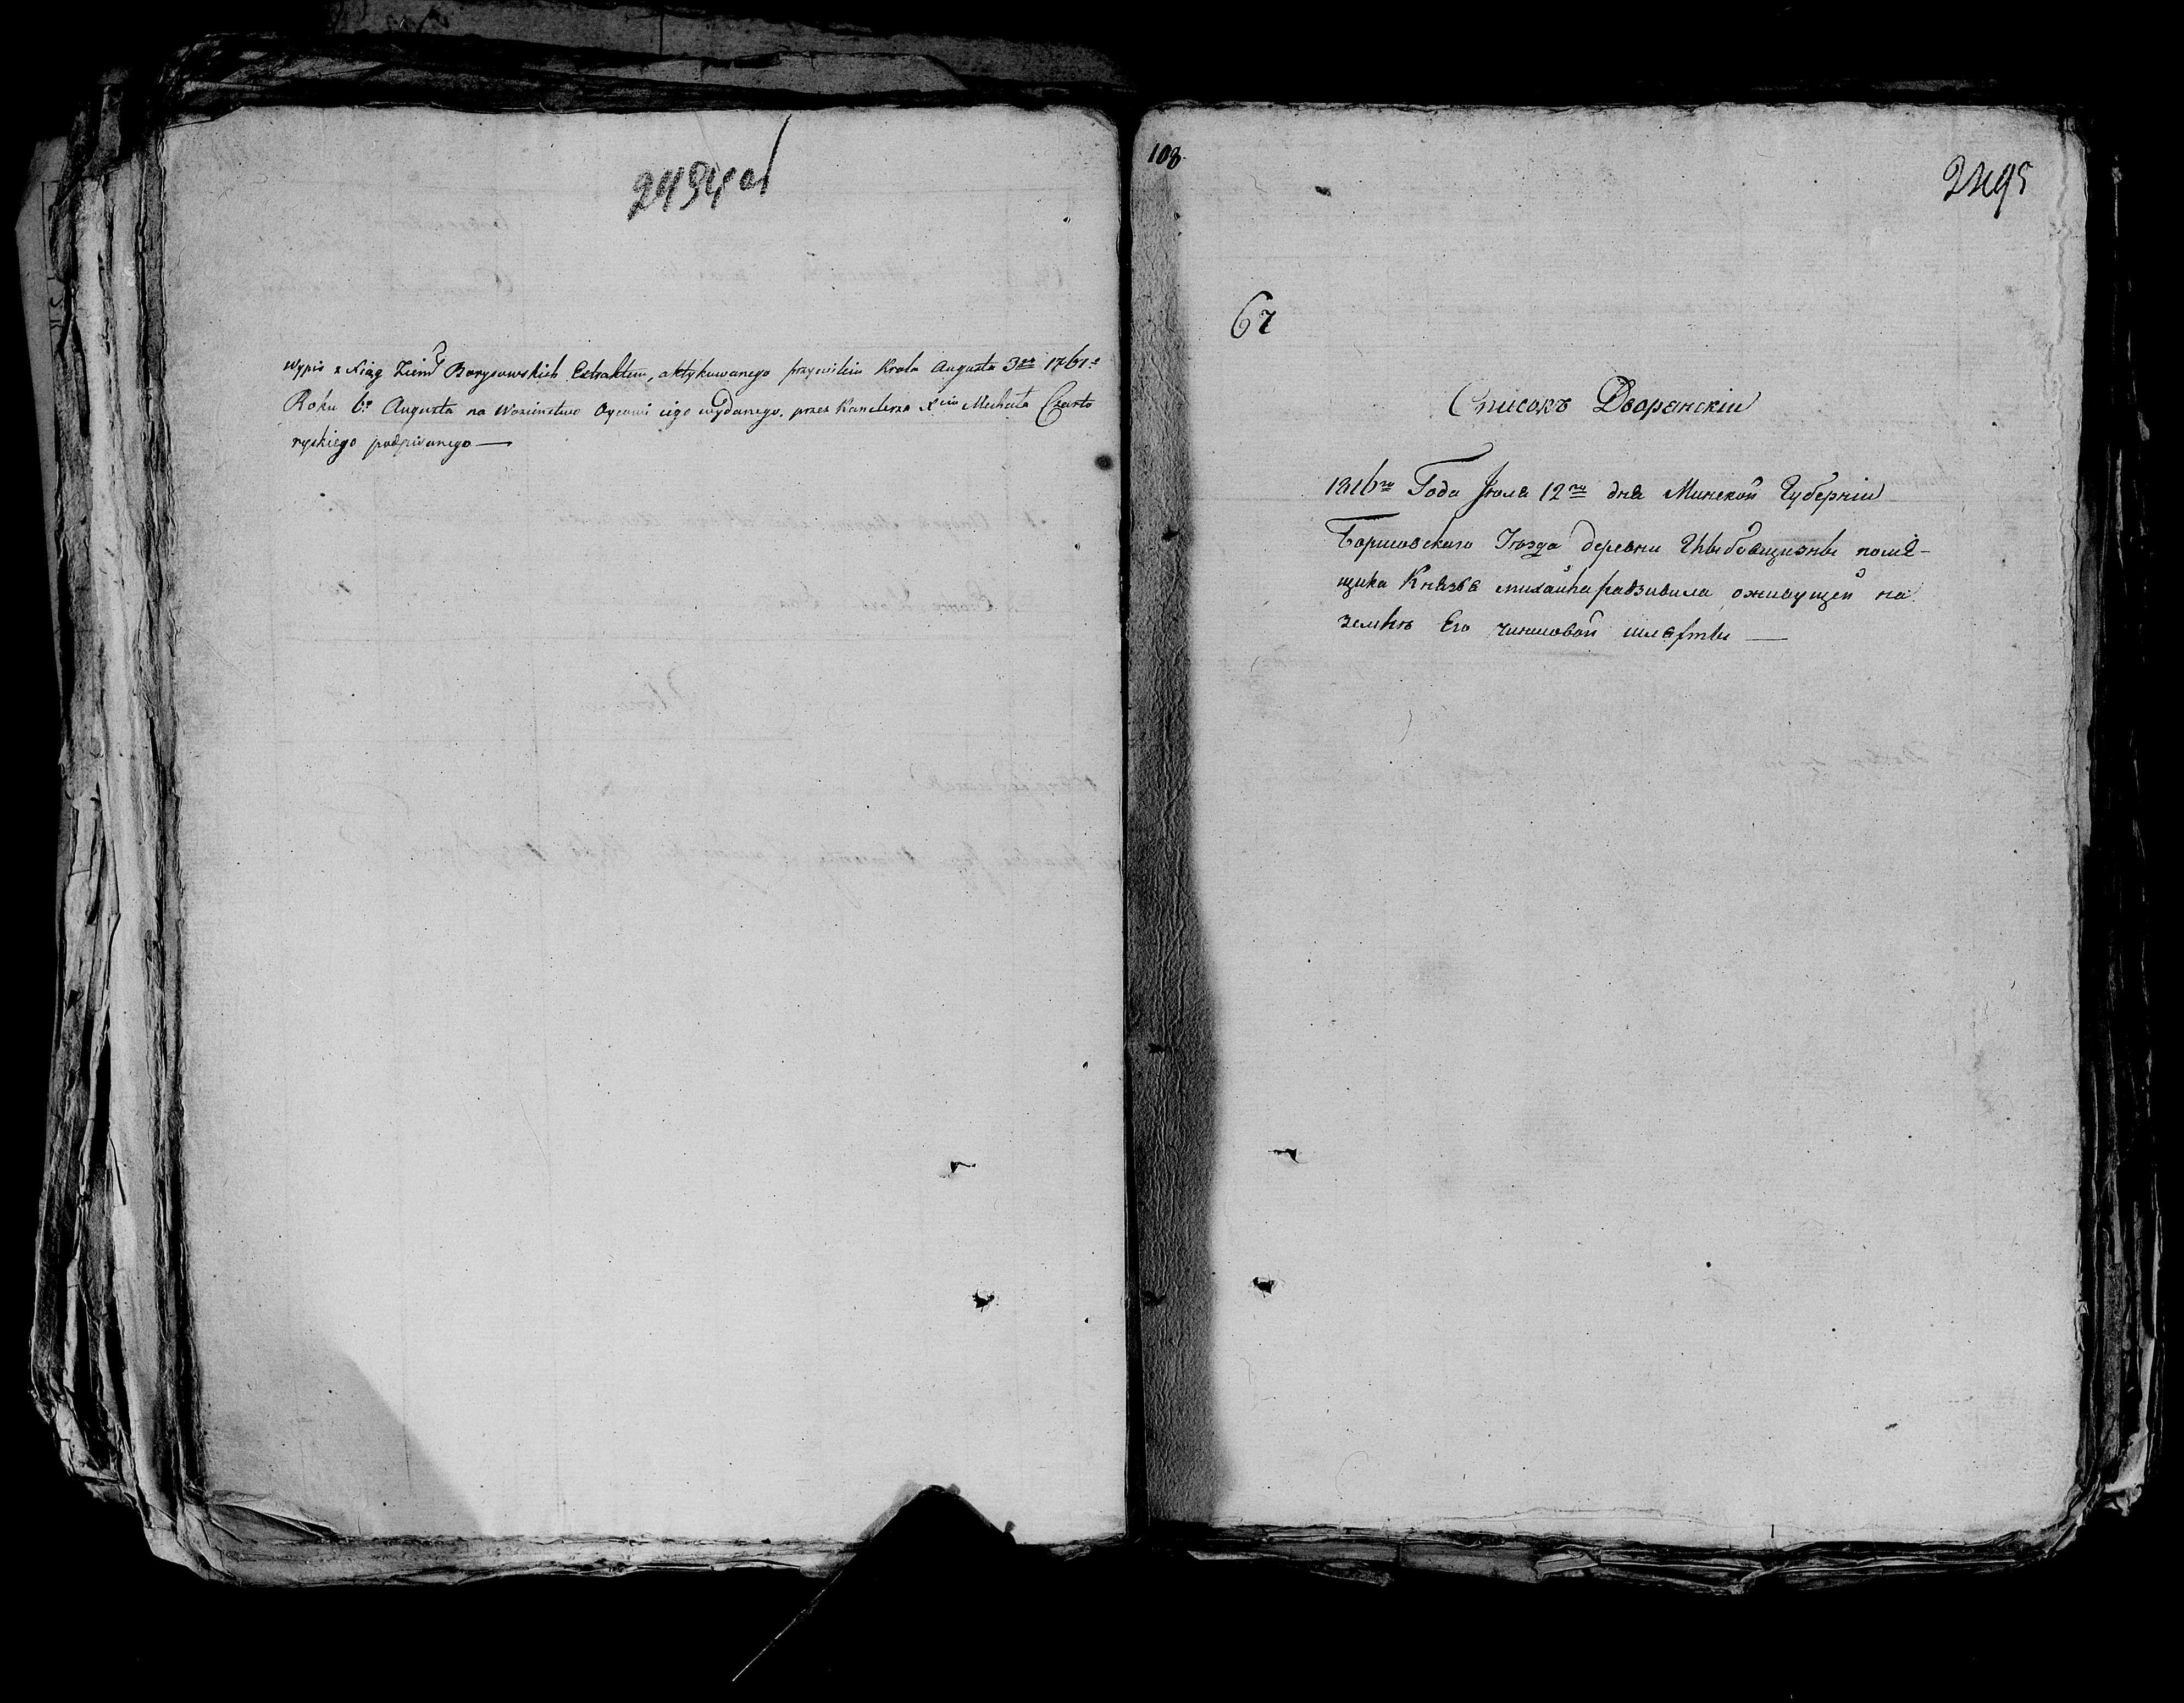 2494об
Wypis z Xiąg Ziem. Borysowskich Extraktem, aktykowanego przywileiu Krola Augusta 3go 1761o
Roku 6o Augusta na Wozienstwo Oycowi iego wydanego, przez Kanclerza Xcia Michała Czarto
ryskiego podpisanego —
108
2495
67
Списокъ Дворянскіи
1816го Года Іюля 12го дня Минской Губерніи
Борисовского Уезда деревни помѣ-
щика Князя михаила радзивила о живущей на
землѣ Его чиншовой шляхты —